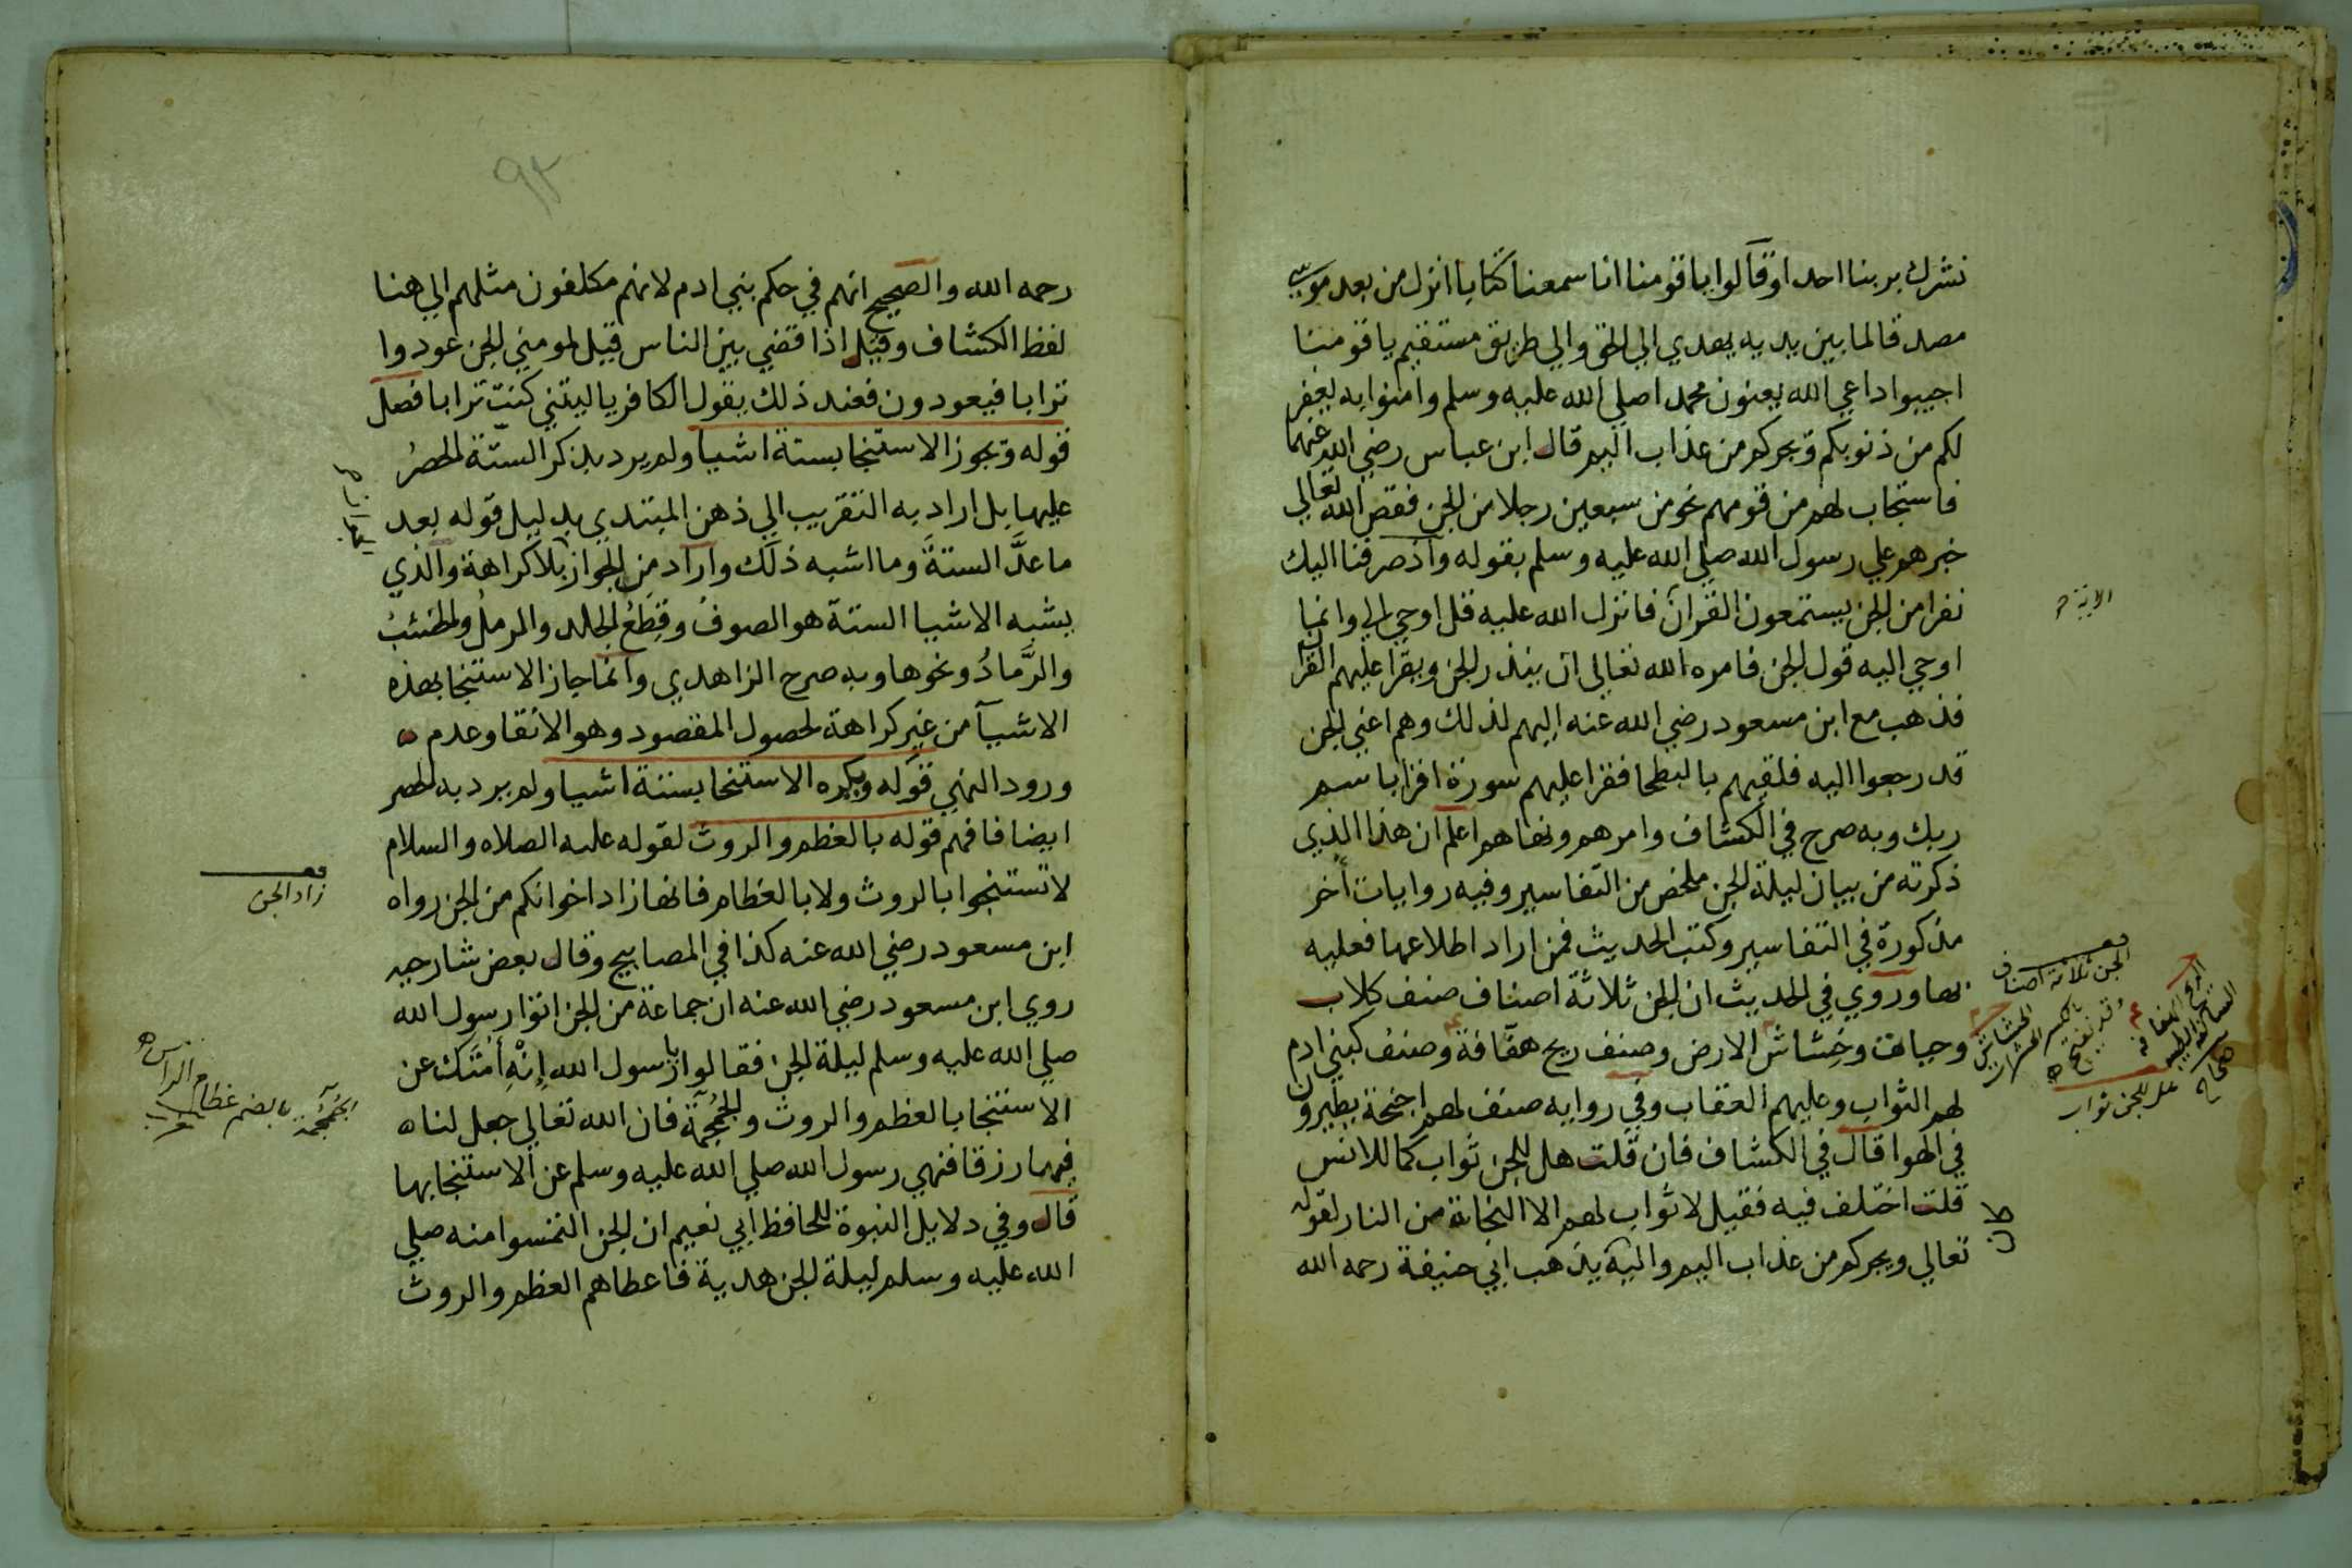 نشرك بربنا احدا وقالوا يا قومنا انا سمعنا كتابا انزل من بعد موسى
مصدقا لما بين يديه يهدي الي الحق والي طريق مستقيم يا قومنا
اجيبوا داعي الله يعنون محمدا صلي الله عليه وسلم وامنوا به يغفر
لكم من ذنوبكم ويجركم من عذاب اليم قال ابن عباس رضي الله عنهما
فاستجاب لهم من قومهم نحو من سبعين رجلا من الجن فقص الله تعالي
خبرهم علي رسول الله صلي الله عليه وسلم بقوله واذ صرفنا اليك
نفرا من الجن يستمعون القرآن فانزل الله عليه قل اوحي الي وانما
الاية
اوحي اليه قول الجن فامره الله تعالى ان ينذر الجن ويقرا عليهم القران
فذهب مع ابن مسعود رضي الله عنه اليهم لذلك وهم اعني الجن
قد رجعوا اليه فلقيهم بالبطحا فقرا عليهم سورة اقرا باسم
ربك وبه صرح في الكشاف وامرهم ونهاهم اعلم ان هذا الذي
ذكرته من بيان ليلة الجن ملخص من التفاسير وفيه روايات أخر
مذكورة في التفاسير وكتب الحديث فمن اراد اطلاعها فعليه
بها وروي في الحديث ان الجن ثلاثة اصناف صنف كلاب
وحيات وخشاش الارض وصنف ريح هفافة وصنف كبني ادم
لهم الثواب وعليهم العقاب وفي رواية صنف لهم اجنحة يطيرون
في الهوا قال في الكشاف فان قلت هل للجن ثواب كما للانس
قلت اختلف فيه فقيل لا ثواب لهم الا النجاة من النار لقوله
تعالي ويجركم من عذاب اليم واليه يذهب ابي حنيفة رحمه الله
الجن ثلاثة اصناف
الخشاش بالكسر الحشرات
وقد يفتح
الريح الهفافة
الساكنة الطيبة
صحاح
هل للجن ثواب
٩٣
رحمه الله والصحيح انهم في حكم بني ادم لانهم مكلفون مثلهم الي هنا
لفظ الكشاف وقيل اذا قضي بين الناس قيل لمومني الجن عودوا
ترابا فيعودون فعند ذلك يقول الكافر يا ليتني كنت ترابا فصل
قوله ويجوز الاستنجا بستة اشيا ولم يرد بذكر الستة الحصر
عليها بل اراد به التقريب الي ذهن المبتدي بدليل قوله بعد
ما عدَّ الستةَ وما اشبه ذلك واراد من الجواز بلا كراهة والذي
يشبه الاشيا الستة هو الصوفُ وقِطَعُ الجلد والرملُ والخشبُ
والرَّمادُ ونحوها وبه صرح الزاهدي وانما جاز الاستنجا بهذه
الاشيآ من غير كراهة لحصول المقصود وهو الانقا وعدم
ورود النهي قوله ويكره الاستنجا بستة اشيا ولم يرد به الحصر
ايضا فافهم قوله بالعظم والروث لقوله عليه الصلاه والسلام
لا تستنجوا بالروث ولا بالعظام فانها زاد اخوانكم من الجن رواه
زاد الجن
ابن مسعود رضي الله عنه كذا في المصابيح وقال بعض شارحيه
روي ابن مسعود رضي الله عنه ان جماعة من الجن اتوا رسول الله
صلي الله عليه وسلم ليلة الجن فقالوا يا رسول الله إنْهِ أُمَّتَك عن
الاستنجا بالعظم والروث والجُمجُمة فان الله تعالى جعل لنا
الجُمْجُمة بالضم عظام الراس
فيها رزقا فنهي رسول الله صلي الله عليه وسلم عن الاستنجا بها
قال وفي دلايل النبوة للحافظ ابي نعيم ان الجن التمسوا منه صلي
الله عليه وسلم ليلة الجن هدية فاعطاهم العظم والروث